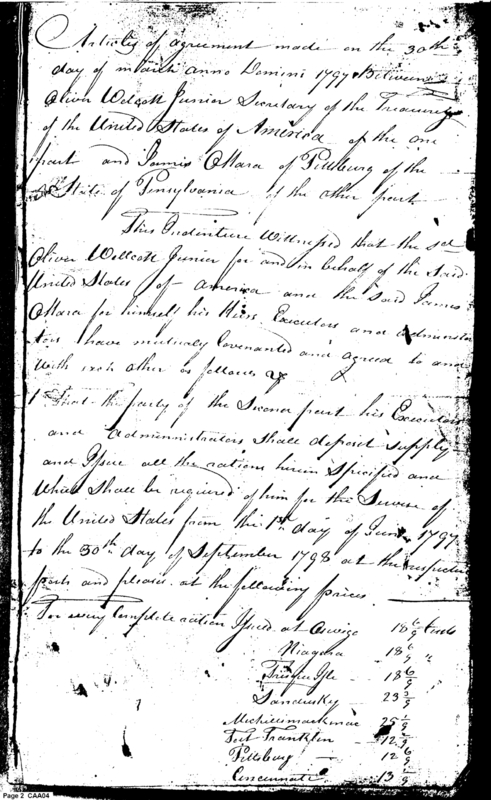 Articles of agreement made on the 30th
day of March anno Domini 1797 Between
Oliver Wolcott Junior Secretary of the Treasury
of the United States of America of the one
part and James OHara of Pittsburg of the
State of Pensylvania of the other part
This Indenture Witnessed that the sd
Oliver Wollcott Junior for and in behalf of the said
United States of America and the said James
OHara for himself his Heirs Executors and administra
tors have mutualy Covenanted and agreed to and
with each other as follows
1st That the party of the Second part his Executors
and Administrators shall deposit supply
and Issue all the rations herein specified and
which shall be required of him for the Service of
the United States from the 1st day of June 1797
to the 30th day of September 1798 at the respective
posts and places at the following prices
For every Complete ration Issued at Oswigo 18 6/9 Cents
Niagara - 18 6/9 "
Presque Isle - 18 6/9 "
Sandusky - 23
Michilimackinac 25
Fort Franklin - 12
Pittsburg - 12 6/9
Cincinnati 13
Page 2 CAA04